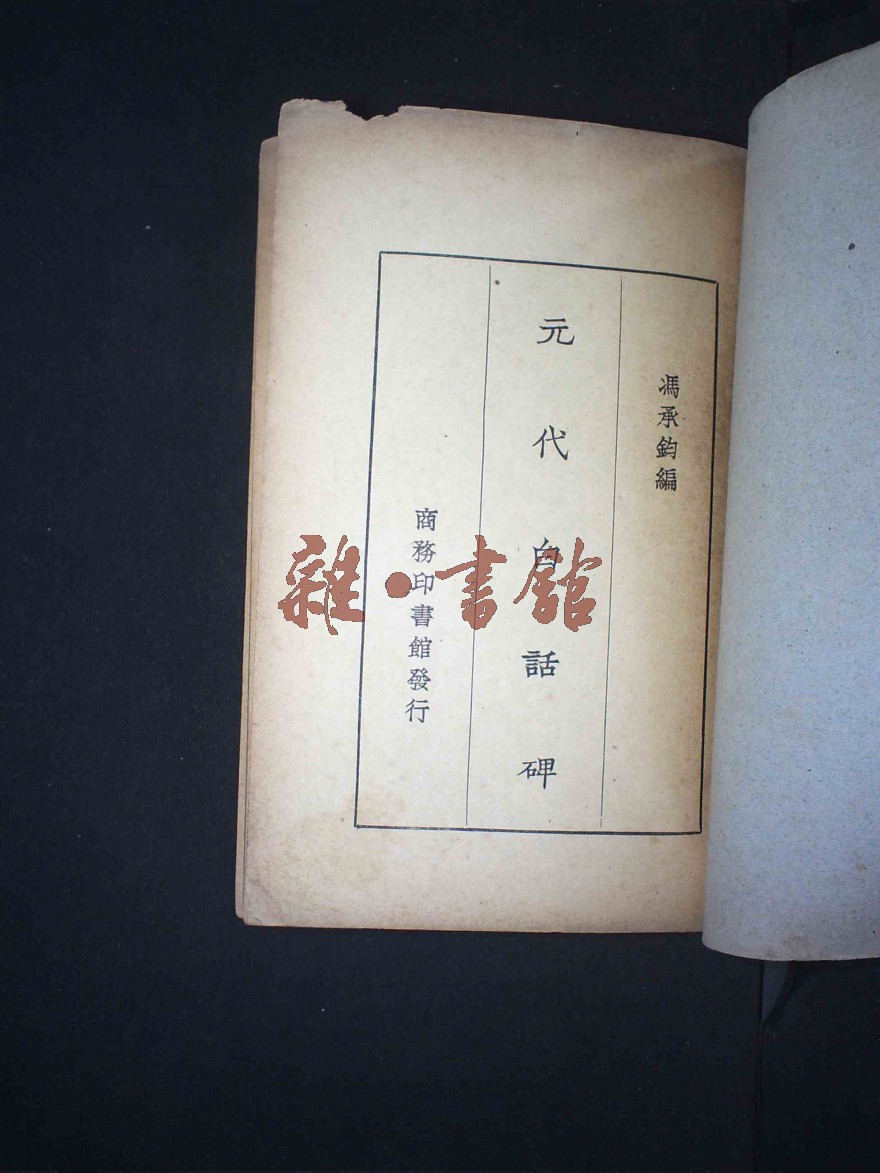 馮承鈞編
元代白話碑
商務印書館發行
雜·書館